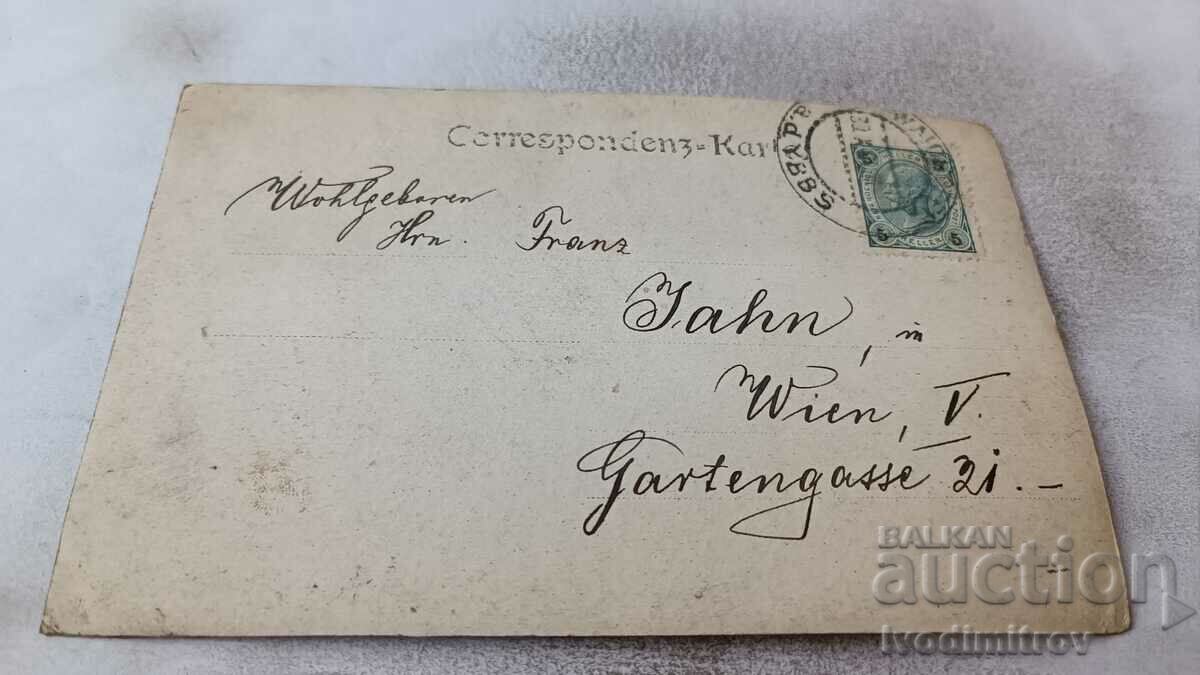 Correspondenz-Kar
Wohlgeboren
Hrn. Franz
Jahn, in
Wien, V.
Gartengasse 21.–
5 5
5 HELLER 5
BALKAN
auction
Ivodimitrov